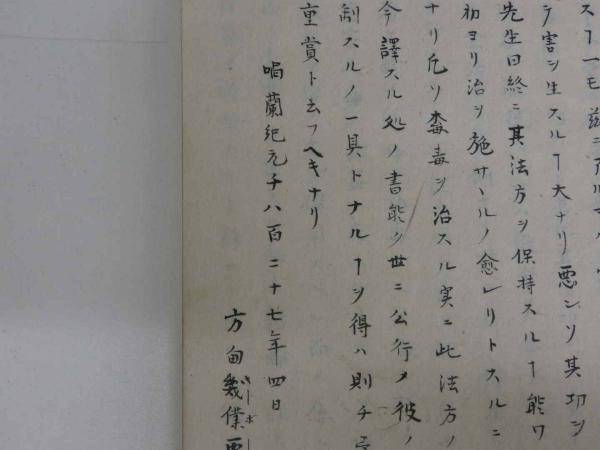 スルヿモ茲ニアル
テ害ヲ生スルヿ大ナリ悪ンソ其功ヲ
先生曰終ニ其法方ヲ保持スルヿ能ワ
初ヨリ治ヲ施サヽルノ愈レリトスルニ
ナリ凡ソ黴毒ヲ治スル実ニ此法方ノ
今譯スル処ノ書能ク世ニ公行〆彼ノ
制スルノ一具トナルヿヲ得ハ則チ
重賞ト云フヘキナリ
喎蘭紀元千八百二十七年四日
方甸幾僕